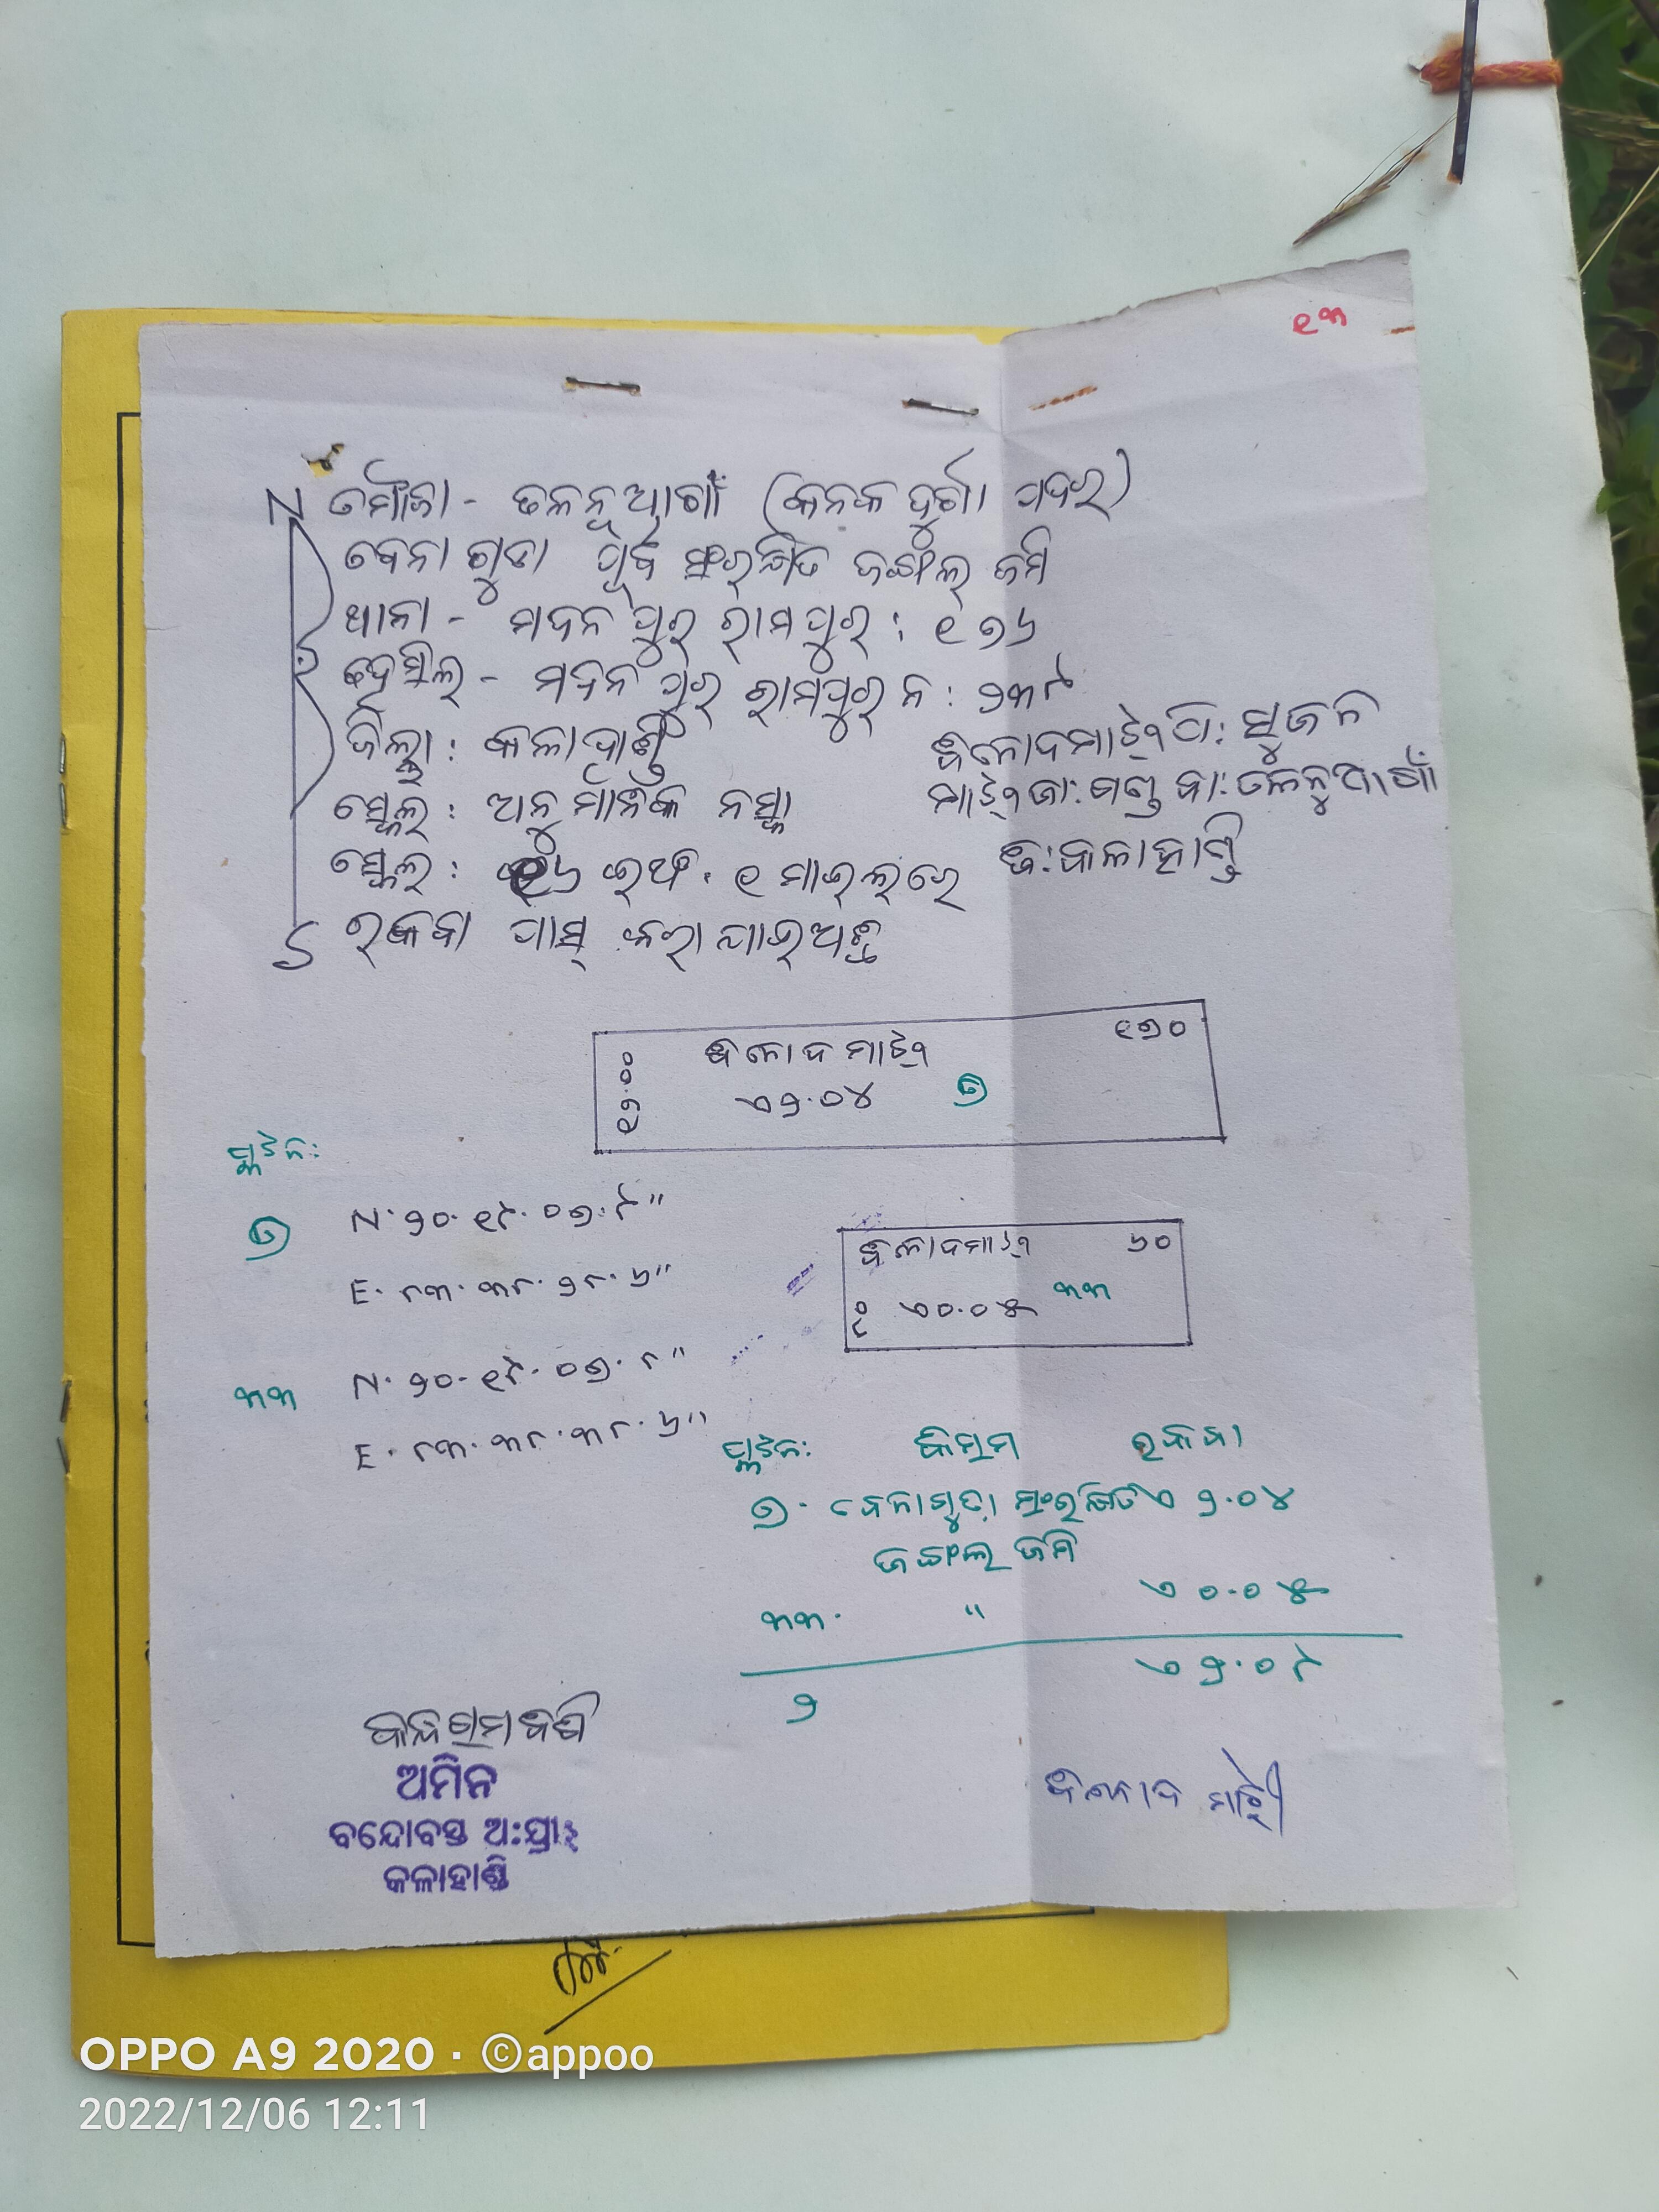 ୧୩
N ତମୌଜା - ତଳନୂଆଗାଁ (କନକ ଦୁର୍ଗା ପଦର)
ବେନାଗୁଡା ପୂର୍ବ ସଂରକ୍ଷିତ ଜଙ୍ଗଲ୍ ଜମି
ଥାନା - ମଦନପୁର ରାମପୁର : ୧୭୬
ତହସିଲ - ମଦନପୁର ରାମପୁର ନ : ୨୩୯
ଜିଲ୍ଲା : କଳାହାଣ୍ଡି
ସ୍କେଲ୍ : ଅନୁମାନିକ ନକ୍ସା
ସ୍କେଲ୍ : ୧୬ ଇଞ୍ଚ . ୧ ମାଇଲ୍ ରେ
S ରକବା ପାସ୍ କରାଯାଇଅଛି
ବିନୋଦ ମାଝୀ ପି: ସୁଜନ
ମାଝୀ ଜା: ଗଣ୍ଡ ବା: ତଳନୂଆଗାଁ
ଜି: କଳାହାଣ୍ଡି
୧୭୦
ବିନୋଦ ମାଝୀ
୧୭.୦୦
ଏ୨.୦୪ ୭
ପ୍ଲଟନଂ:
୭ N. ୨୦. ୧୯. ୦୭. ୯"
E. ୮୩. ୩୮. ୨୮. ୬"
ବିନୋଦ ମାଝୀ ୬୦
ଏ୦.୦୫ ୩୩
୩୩ N. ୨୦. ୧୯. ୦୭. ୮"
E. ୮୩. ୩୮. ୩୮. ୬"
ପ୍ଲଟନଂ: କିସମ ରକବା
୭. ବେନାଗୁଡା ସଂରକ୍ଷିତ ଏ ୨.୦୪
ଜଙ୍ଗଲ ଜମି
୩୩. " ଏ ୦.୦୫
୨ ଏ ୨.୦୯
ଅମିନ
ବନ୍ଦୋବସ୍ତ
କଳାହାଣ୍ଡି
ବିନୋଦ ମାଝୀ
OPPO A9 2020 · ©appoo
2022/12/06 12:11